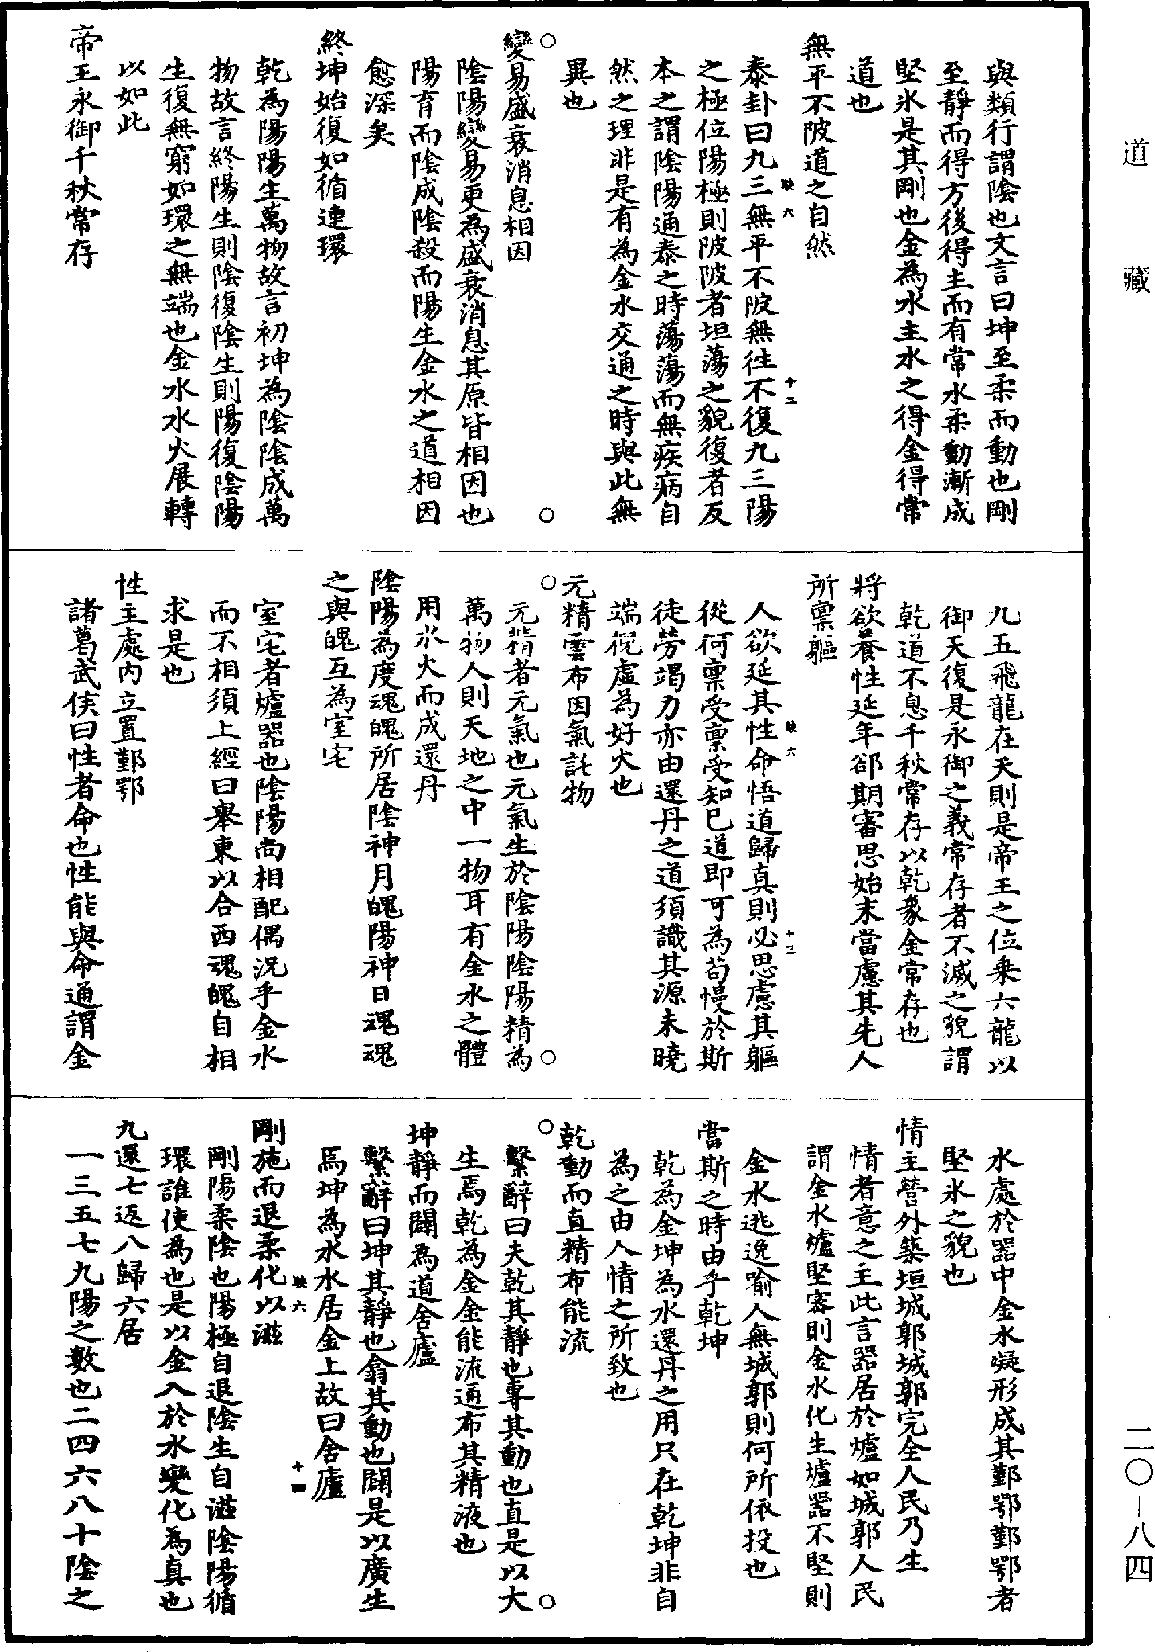 道藏
二〇—八四
與類行謂陰也文言曰坤至柔而動也剛
至靜而得方後得主而有常水柔動漸成
堅氷是其剛也金為水主水之得金得常
道也
無平不陂道之自然
映六 十二
泰卦曰九三無平不陂無往不復九三陽
之極位陽極則陂陂者坦蕩之貌復者反
本之謂陰陽通泰之時蕩蕩而無疾病自
然之理非是有為金水交通之時與此無
異也
變易盛衰消息相因
陰陽變易更為盛衰消息其原皆相因也
陽育而陰成陰殺而陽生金水之道相因
愈深矣
終坤始復如循連環
乾為陽陽生萬物故言初坤為陰陰成萬
物故言終陽生則陰復陰生則陽復陰陽
生復無窮如環之無端也金水水火展轉
以如此
帝王永御千秋常存
九五飛龍在天則是帝王之位乗六龍以
御天復是永御之義常存者不滅之貌謂
乾道不息千秋常存以乾象金常存也
將欲養性延年郤期審思始末當慮其先人
所禀軀
映六 十三
人欲延其性命悟道歸真則必思慮其軀
從何禀受禀受知已道即可為苟慢於斯
徒勞竭力亦由還丹之道須識其源未曉
端倪虛為好火也
元精雲布因氣託物
元精者元氣也元氣生於陰陽陰陽精為
萬物人則天地之中一物耳有金水之體
用水火而成還丹
陰陽為度魂魄所居陰神月魄陽神日魂魂
之與魄互為室宅
室宅者爐器也陰陽尚相配偶況乎金水
而不相須上經曰舉東以合西魂魄自相
求是也
性主處內立置鄞鄂
諸葛武侯曰性者命也性能與命通謂金
水處於器中金水凝形成其鄞鄂鄞鄂者
堅氷之貌也
情主營外築垣城郭城郭完全人民乃生
情者意之主此言器居於爐如城郭人民
謂金水爐堅密則金水化生爐器不堅則
金水逃逸喻人無城郭則何所依投也
當斯之時由乎乾坤
乾為金坤為水還丹之用只在乾坤非自
為之由人情之所致也
乾動而直精布能流
繫辭曰夫乾其靜也專其動也直是以大
生焉乾為金金能流通布其精液也
坤靜而闢為道舍廬
繫辭曰坤其靜也翕其動也闢是以廣生
焉坤為水水居金上故曰舍廬
映六 十四
剛施而退柔化以滋
剛陽柔陰也陽極自退陰生自滋陰陽循
環誰使為也是以金入於水變化為真也
九還七返八歸六居
一三五七九陽之數也二四六八十陰之